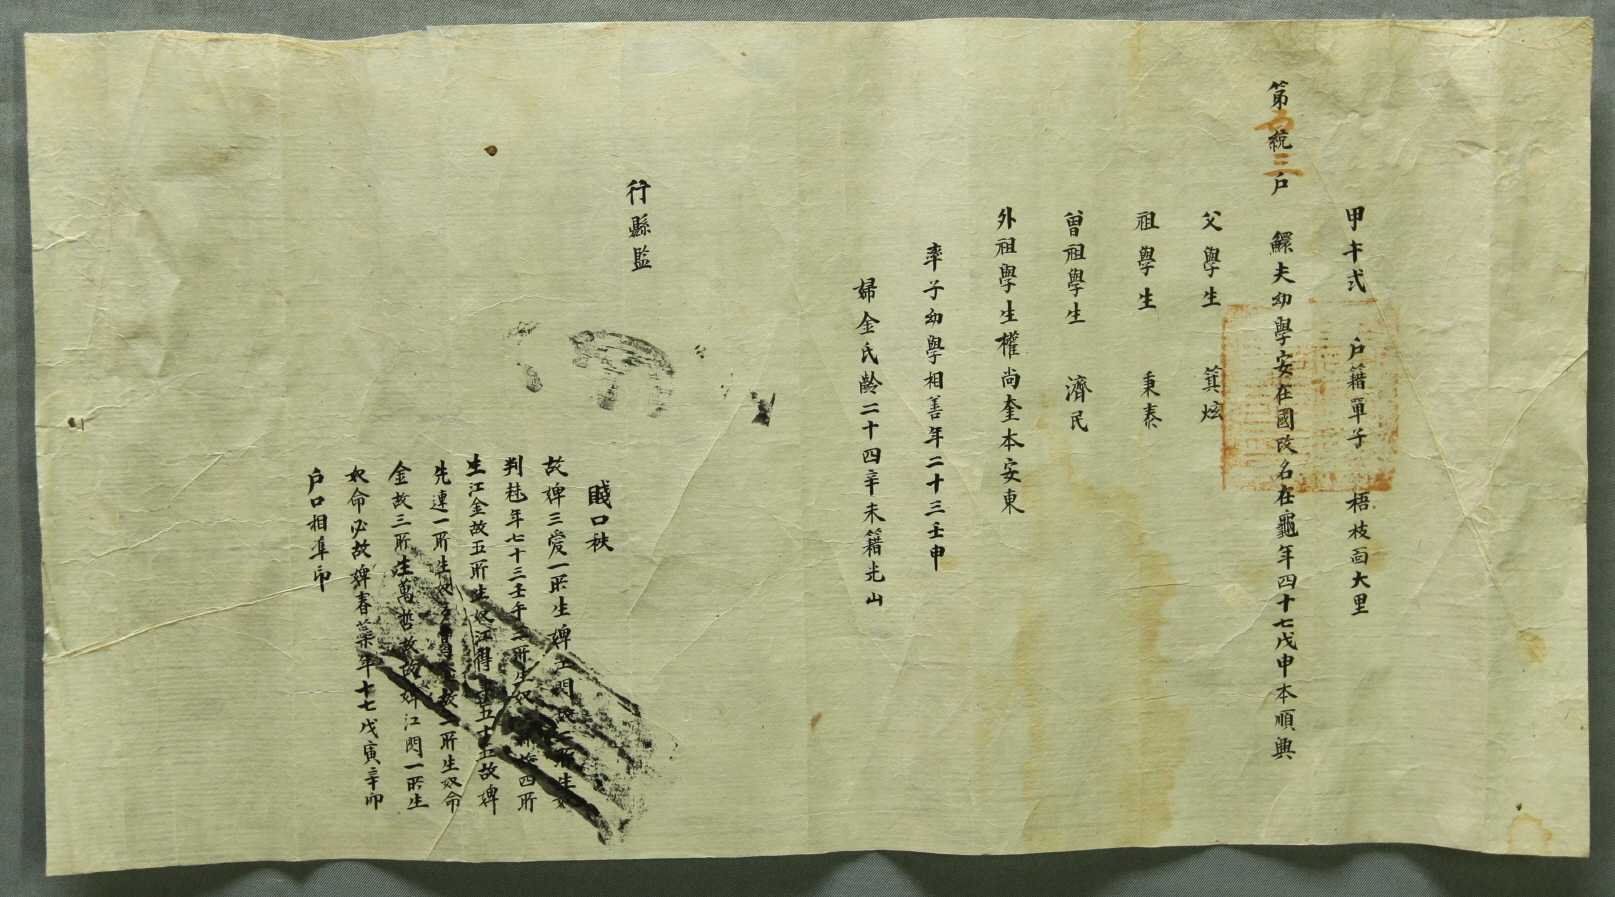 甲午式 戶籍單子 梧枝面大里
第五統三戶 鰥夫幼學安在國改名在龜年四十七戊申本順興
父學生 箕炫
祖學生 秉泰
曾祖學生 濟民
外祖學生權尚奎本安東
率子幼學相善年二十三壬申
婦金氏齡二十四辛未籍光山
行縣監
賤口秩
故婢三愛一所生婢江閃故二所生奴
判 年七十三壬午三所生奴 四所
生江金故五所生奴江得 五十 故婢
先連一所生奴 故二所生奴命
金故三所生萬哲故故婢江閃一所生
奴命必故婢春葉年十七戊寅辛卯
戶口相準印